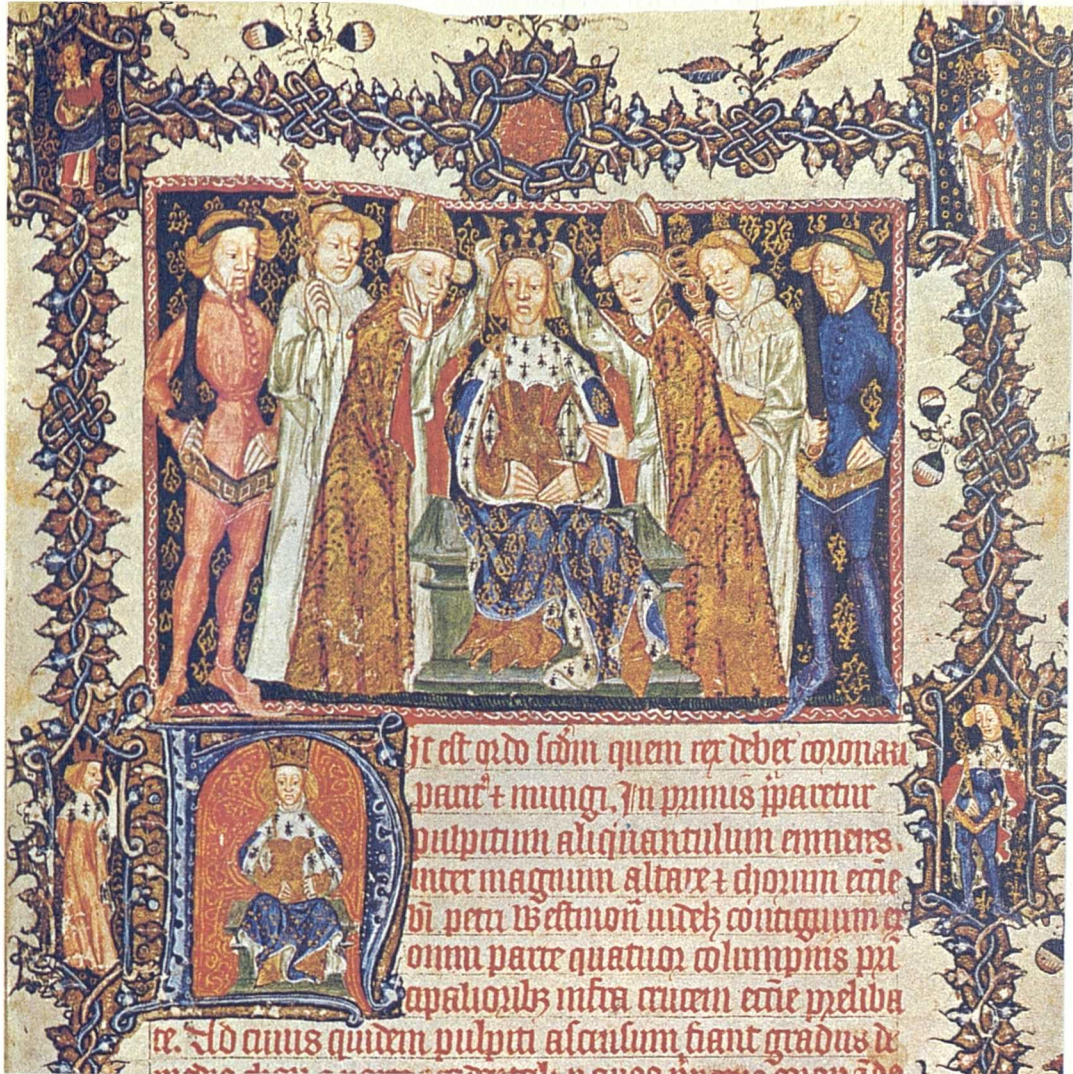 Hic est ordo scd̄m quem rex debet coronari
pariť ⁊ inungi. In primis p̄paretur
pulpitum aliquantulum eminens.
inter magnum altare ⁊ chorum ecc̄ie
bi̅ petri Westmon̄ videlꝫ contiguum ex
omni parte quatuor columpnis pri̅
cipalioribꝫ infra crucem ecc̄ie preliba
te. Ad cuius quidem pulpiti ascensum fiant gradus de